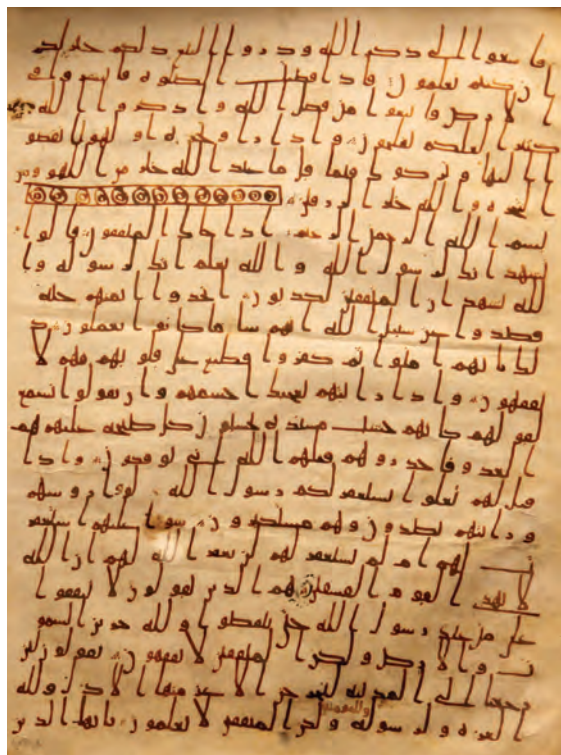 فاسعوا الى ذكر الله وذروا البيع ذلكم خير لكم
ان كنتم تعلمون فاذا قضيت الصلوة فانتشروا في
الارض وابتغوا من فضل الله واذكروا الله
كثيرا لعلكم تفلحون واذا راوا تجرة او لهوا انفضو
ا اليها وتركوك قيما قل ما عند الله خير من اللهو ومن
التجرة والله خير الرزقين
بسم الله الرحمن الرحيم اذا جاك المنفقون قالوا
نشهد انك لرسول الله والله يعلم انك لرسوله وا
لله يشهد ان المنفقين لكذبون اتخذوا ايمنهم جنة
فصدوا عن سبيل الله انهم سا ما كانوا يعملون ذ
لك بانهم امنوا ثم كفروا فطبع على قلوبهم فهم لا
يفقهون واذا رايتهم تعجبك اجسمهم وان يقولوا تسمع
لقولهم كانهم خشب مسندة يحسبون كل صيحة عليهم هم
العدو فاحذروهم قتلهم الله انى يوفكون واذا
قيل لهم تعلوا يستغفر لكم رسول الله لووا روسهم
ورايتهم يصدون وهم مستكبرون سوا عليهم استغفر
ت لهم ام لم تستغفر لهم لن يغفر الله لهم ان الله
لا يهدي القوم الفسقين هم الذين يقولون لا تنفقوا
على من عند رسول الله حتى ينفضوا ولله خزين السمو
ت والارض ولكن المنفقين لا يفقهون يقولون لين
رجعنا الى المدينة ليخرجن الاعز منها الاذل ولله
وللمومنين
العزة ولرسوله ولكن المنفقين لا يعلمون يايها الذين